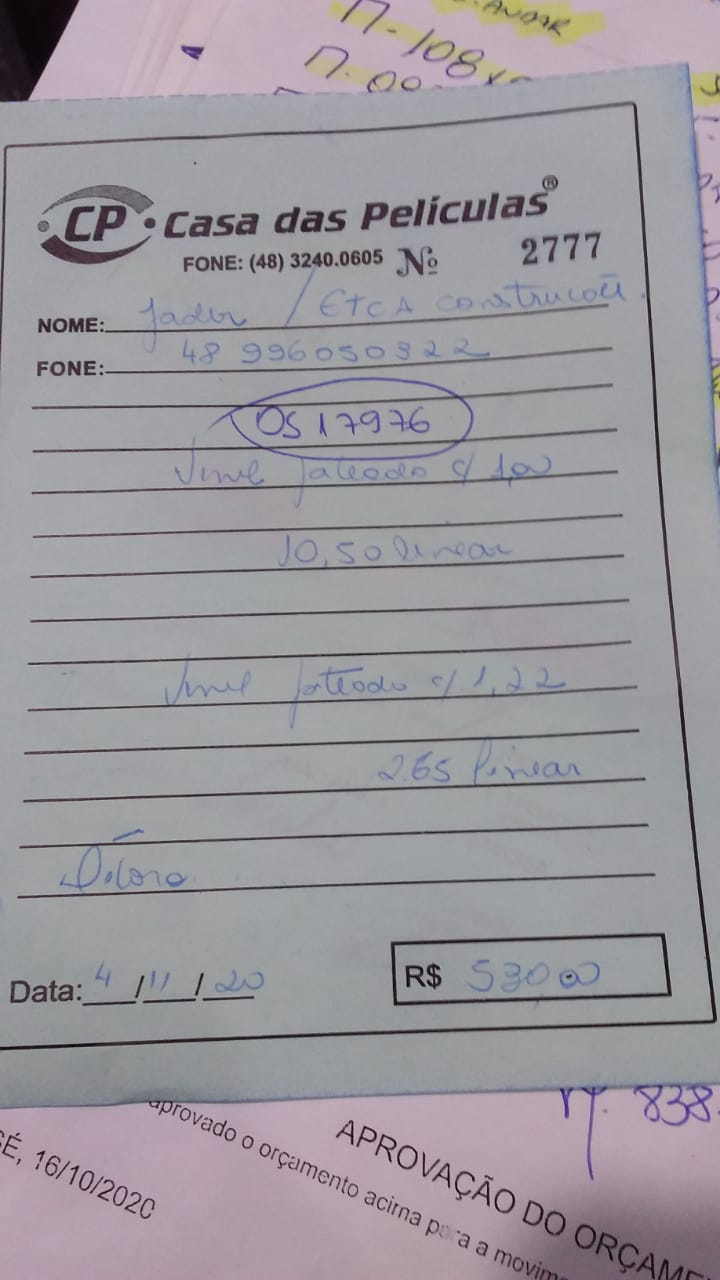 ANDAR
M-108
CP Casa das Películas®
FONE: (48) 3240.0605 Nº 2777
NOME: Jader / ETCA construcoē.
FONE: 48 996050322
OS 17976
Vinil jateado c/ 1,00
10,50 linear
Vinil jateado c/ 1,22
2.65 linear
Data: 4/11/20 R$ 530,00
838.
SÉ, 16/10/2020
APROVAÇÃO DO ORÇAME
aprovado o orçamento acima para a movim